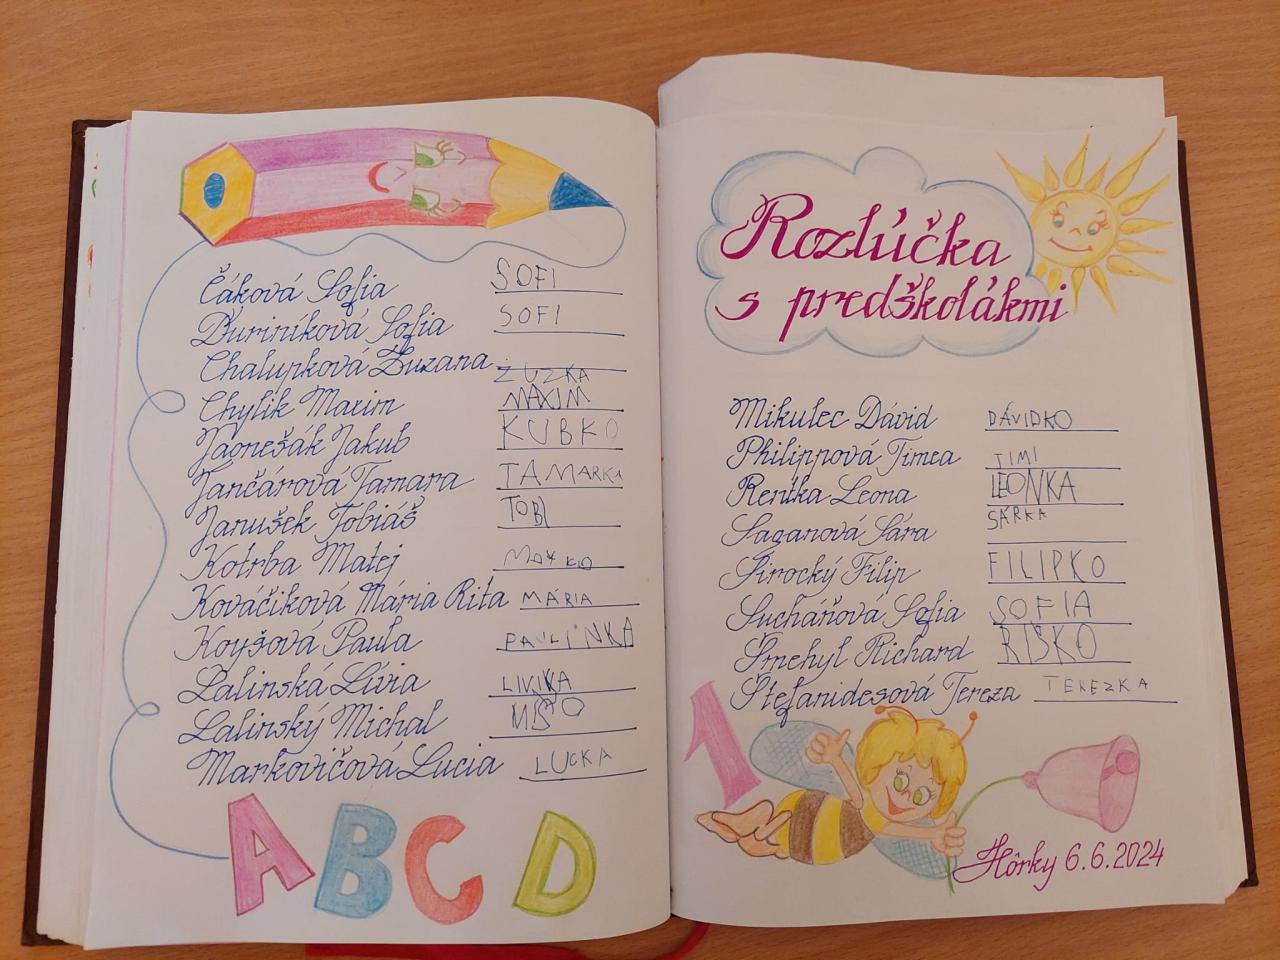 Čáková Sofia SOFI
Ďuriníková Sofia SOFI
Chalupková Zuzana ZUZKA
Chylik Maxim MAXIM
Jagnešák Jakub KUBKO
Jančárová Tamara TAMARKA
Janušek Tobiáš TOBI
Kotrba Matej MAŤKO
Kováčiková Mária Rita MÁRIA
Koyšová Paula PAULÍNKA
Lalinská Lívia LIVIKA
Lalinský Michal MIŠO
Markovičová Lucia LUCKA
A B C D
Rozlúčka
s predškolákmi
Mikulec Dávid DÁVIDKO
Philippová Timea TIMI
Renika Leona LEONKA
Saganová Sára SÁRKA
Sirocký Filip FILIPKO
Suchaňová Sofia SOFIA
Šmehyl Richard RIŠKO
Štefanidesová Tereza TEREZKA
1
Hôrky 6.6.2024